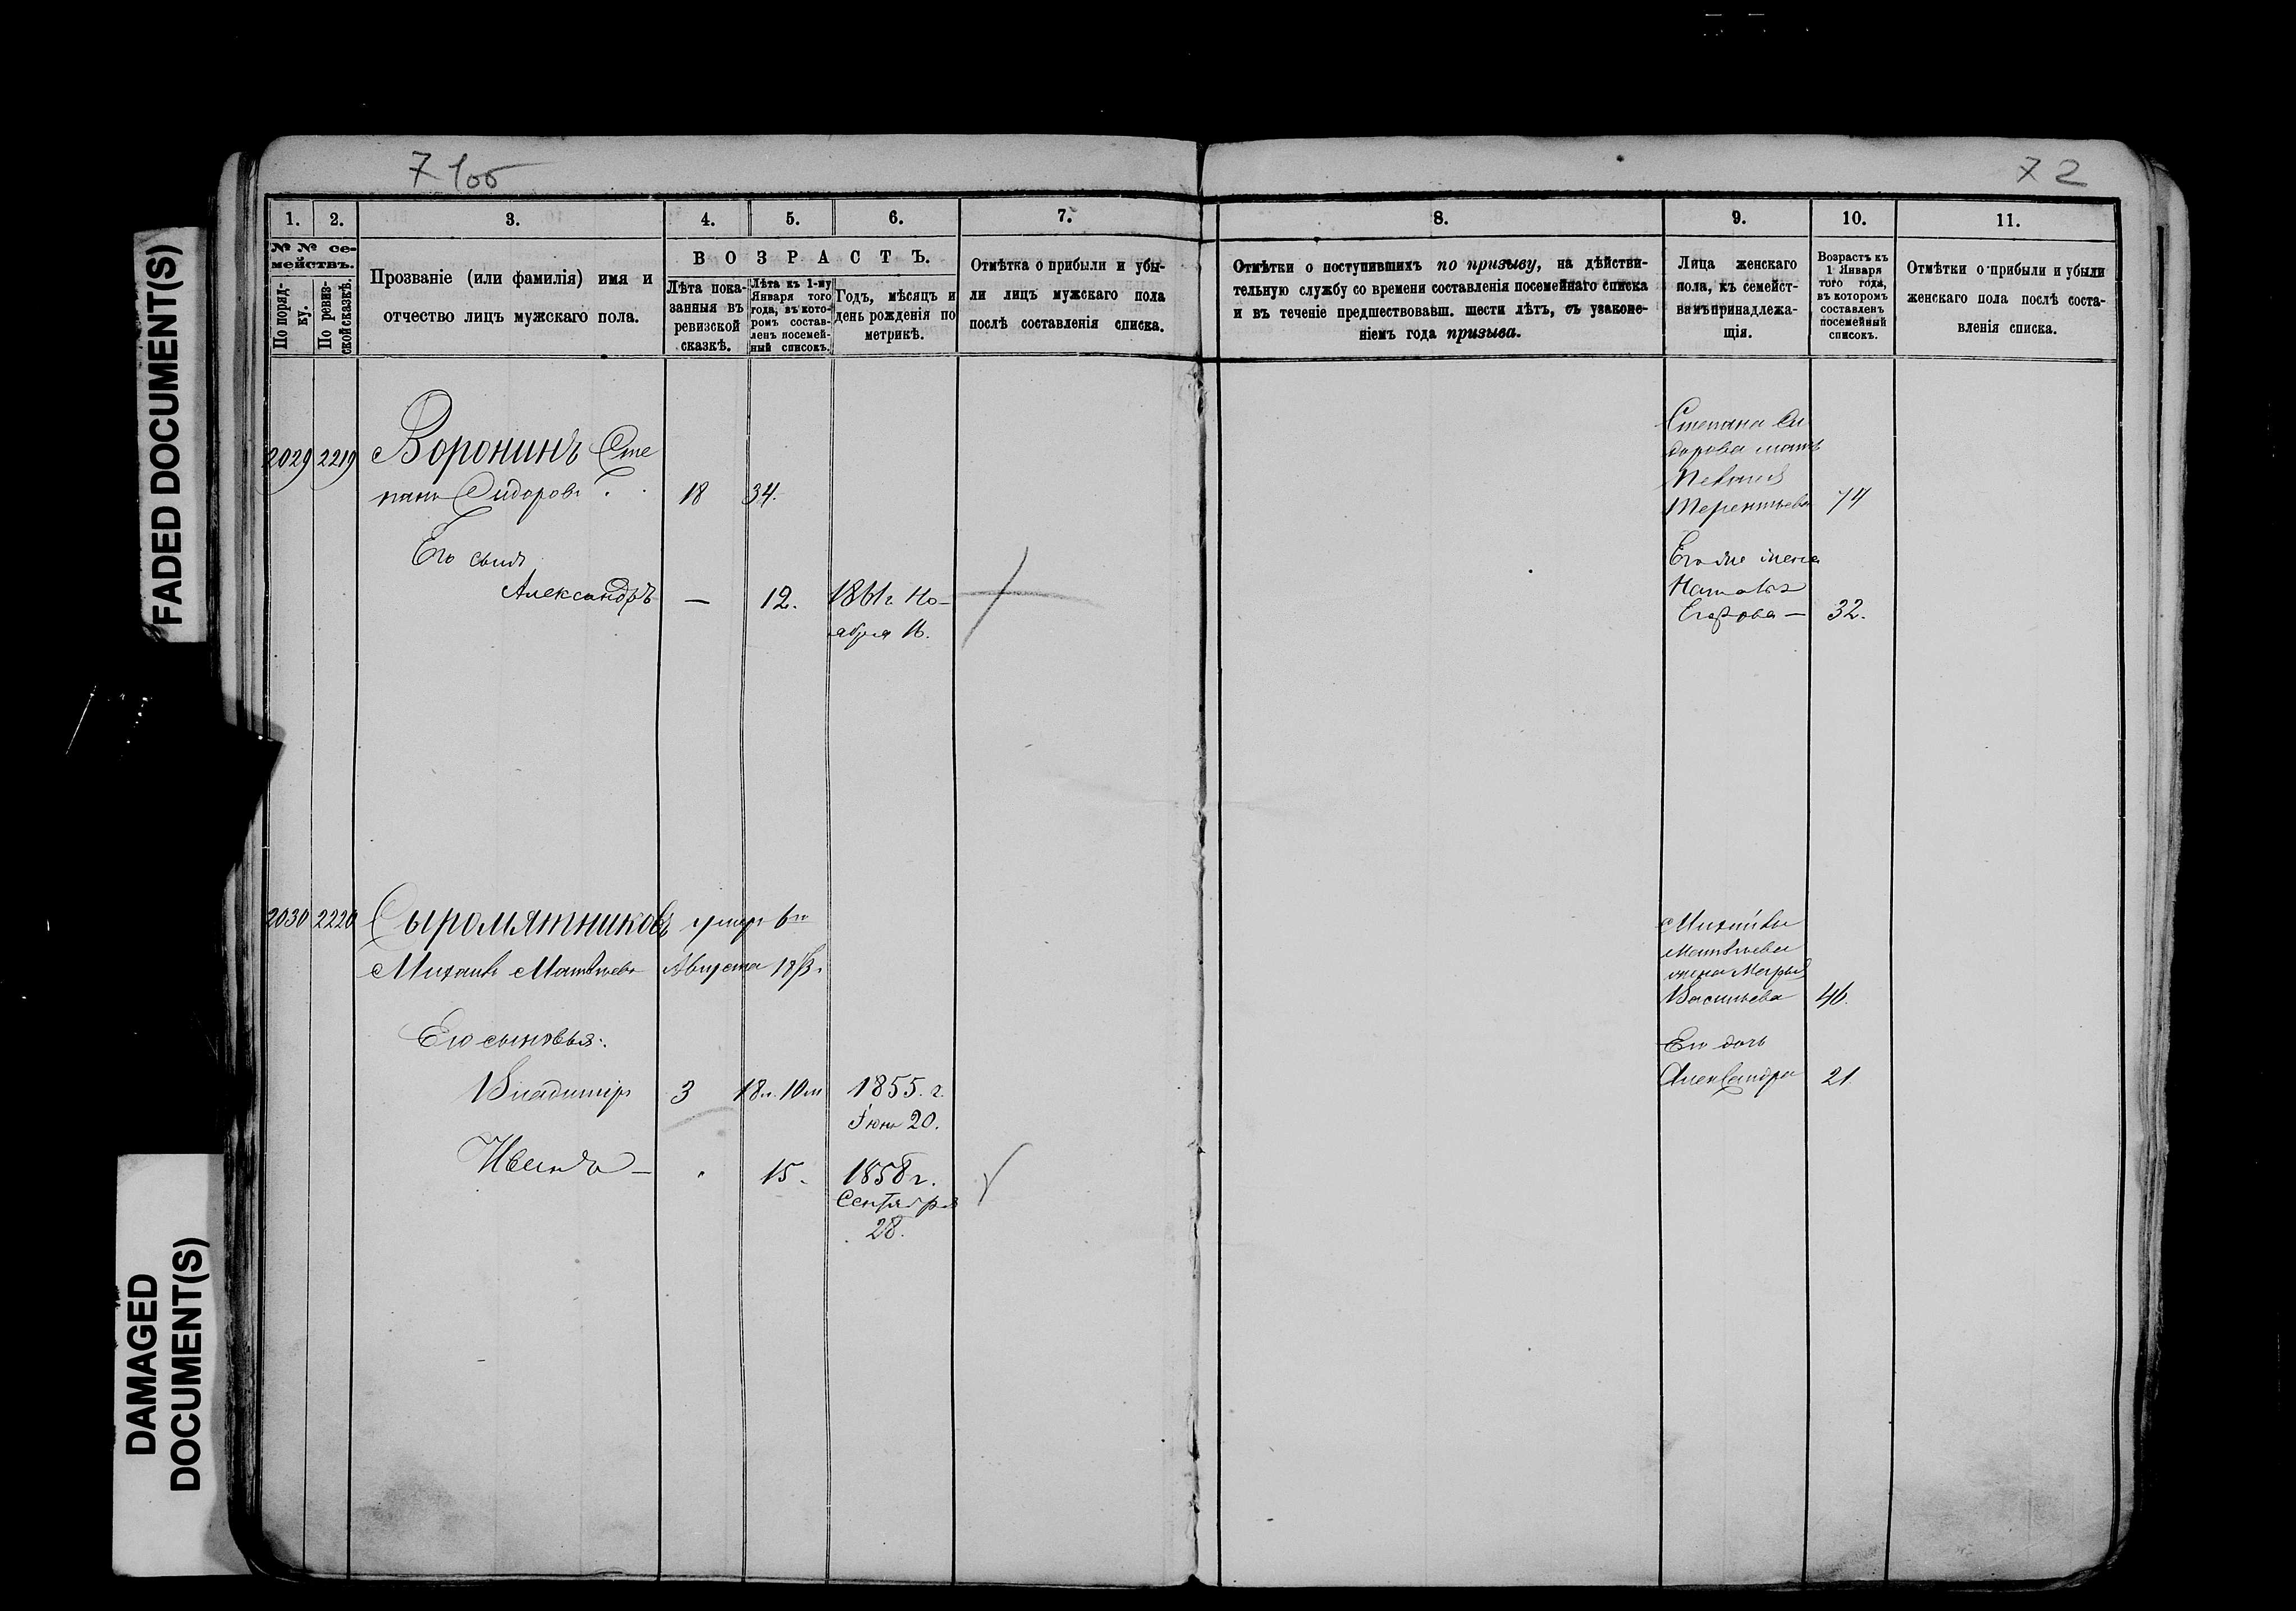 FADED DOCUMENT(S)
DAMAGED
DOCUMENT(S)
71об
72
1.
2.
3.
4.
5.
6.
7.
8.
9.
10.
11.
№ № се-
мействъ.
По поряд-
ку.
По ревиз-
ской сказкѣ.
Прозваніе (или фамилія) имя и
отчество лицъ мужскаго пола.
ВОЗРАСТЪ.
Лѣта пока-
занныя въ
ревизской
сказкѣ.
Лѣта къ 1-му
Января того
года, въ кото-
ромъ состав-
ленъ посемей-
ный списокъ.
Годъ, мѣсяцъ и
день рожденія по
метрикѣ.
Отмѣтка о прибыли и убы-
ли лицъ мужскаго пола
послѣ составленія списка.
Отмѣтки о поступившихъ по призыву, на дѣйстви-
тельную службу со времени составленія посемейнаго списка
и въ теченіе предшествовавш. шести лѣтъ, съ узаконе-
ніемъ года призыва.
Лица женскаго
пола, къ семейст-
вамъ принадлежа-
щія.
Возрастъ къ
1 Января
того года,
въ которомъ
составленъ
посемейный
списокъ.
Отмѣтки о прибыли и убыли
женскаго пола послѣ соста-
вленія списка.
2029 2219 Воронинъ Сте
панъ Сидоровъ 18 34.
Его сынъ
Александръ — 12. 1861 г. Но-
ября 16.
Степана Си
дорова мать
Терентьева 74
Его же жена
Наталья
Егорова — 32.
2030 2220 Сыромятниковъ умеръ 6го
Михаилъ Матвѣевъ Августа
Его сыновья:
Владиміръ 3 18 л. 10 м 1855. г.
Іюня 20.
Иванъ — " 15. 1858 г.
Сентября
28.
Михаила
Матвѣева
жена Марья
Васильева 46.
Его дочь
Александра 21.